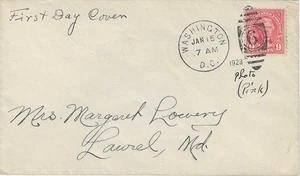 First Day Cover
WASHINGTON
JAN 15
7 AM
D.C.
1923
9
Photo
(Pink)
Mrs. Margaret Lowery
Laurel, Md.